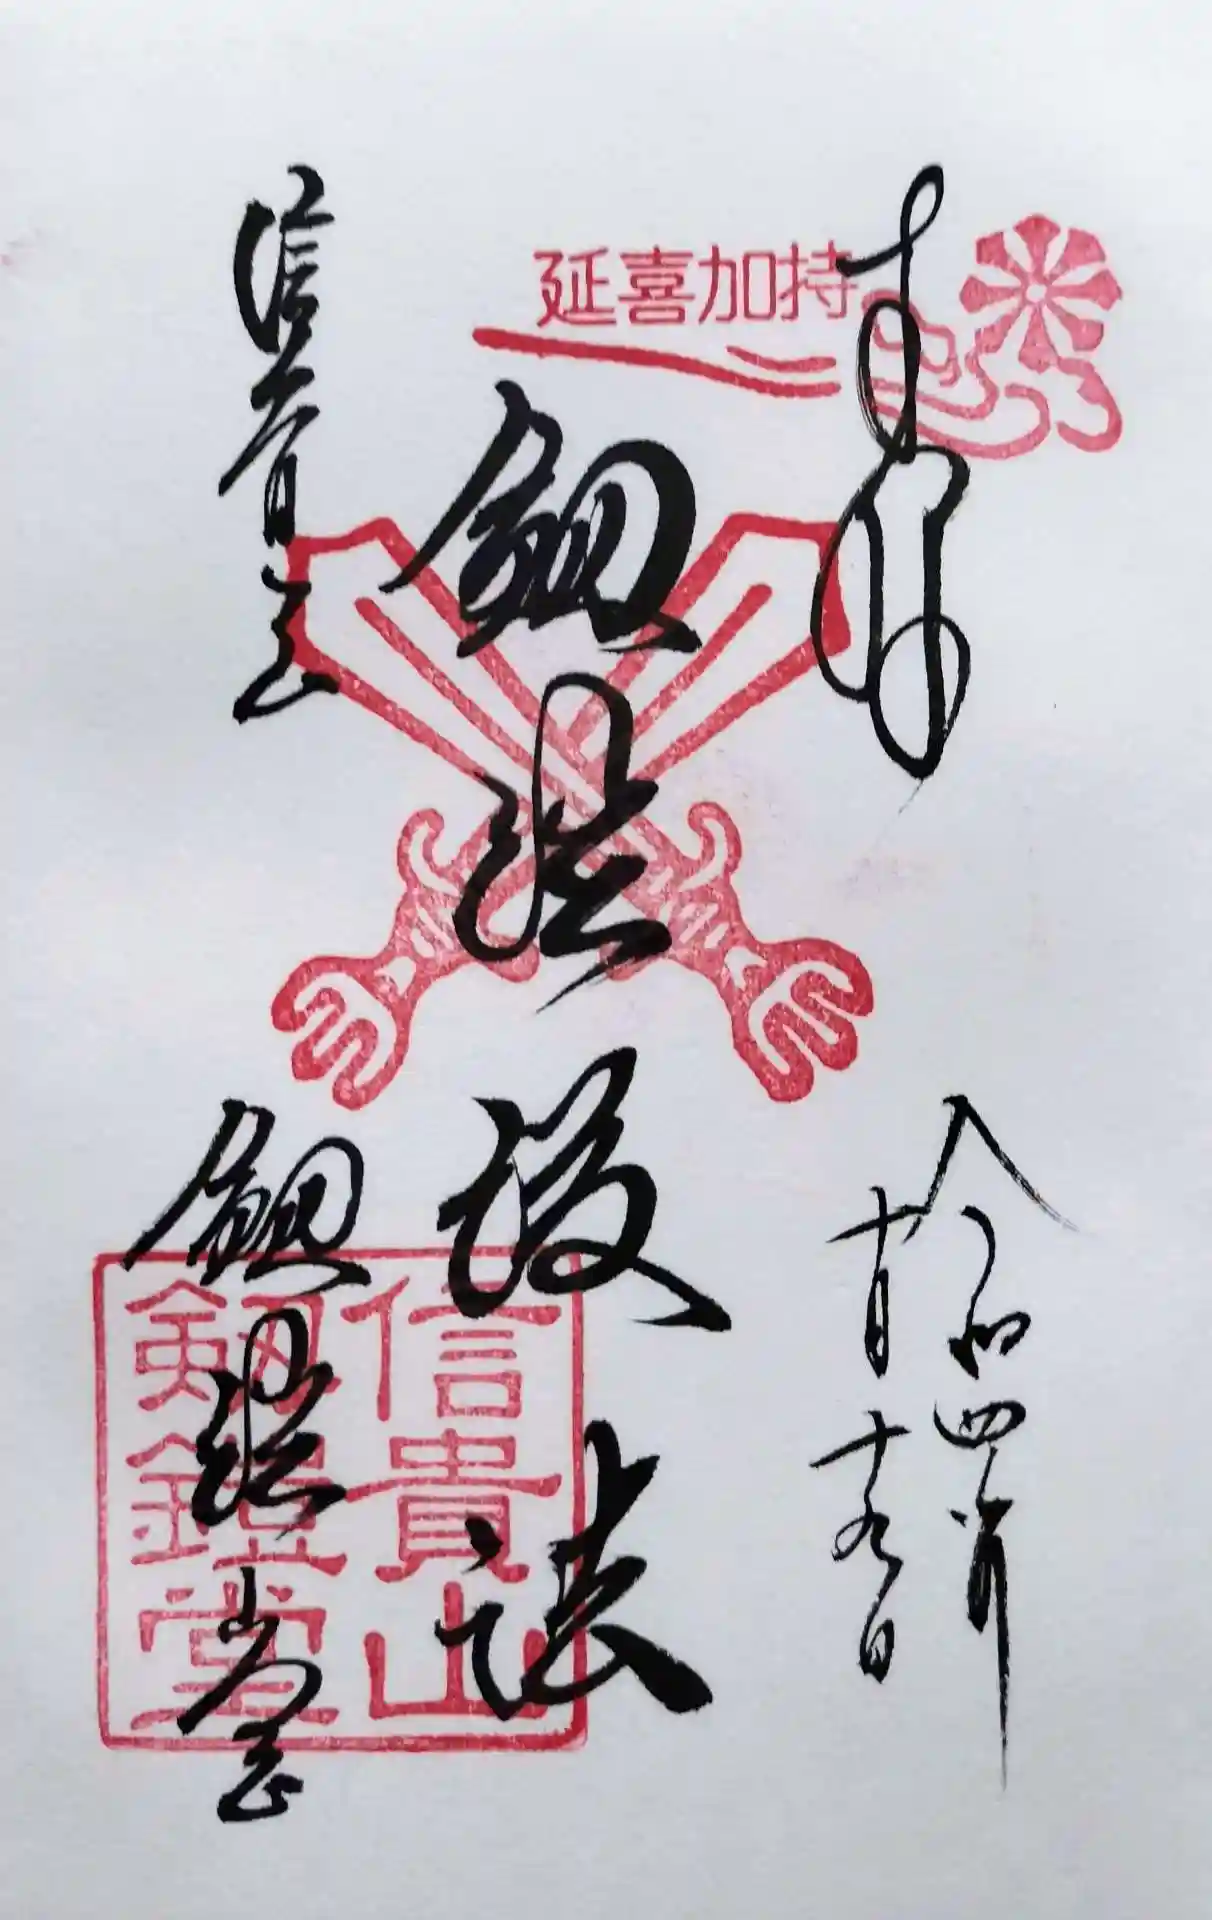 奉拝
令和四年
十月十九日
延喜加持
剱鎧護法
信貴山
剱鎧堂
信貴山
剱鎧堂